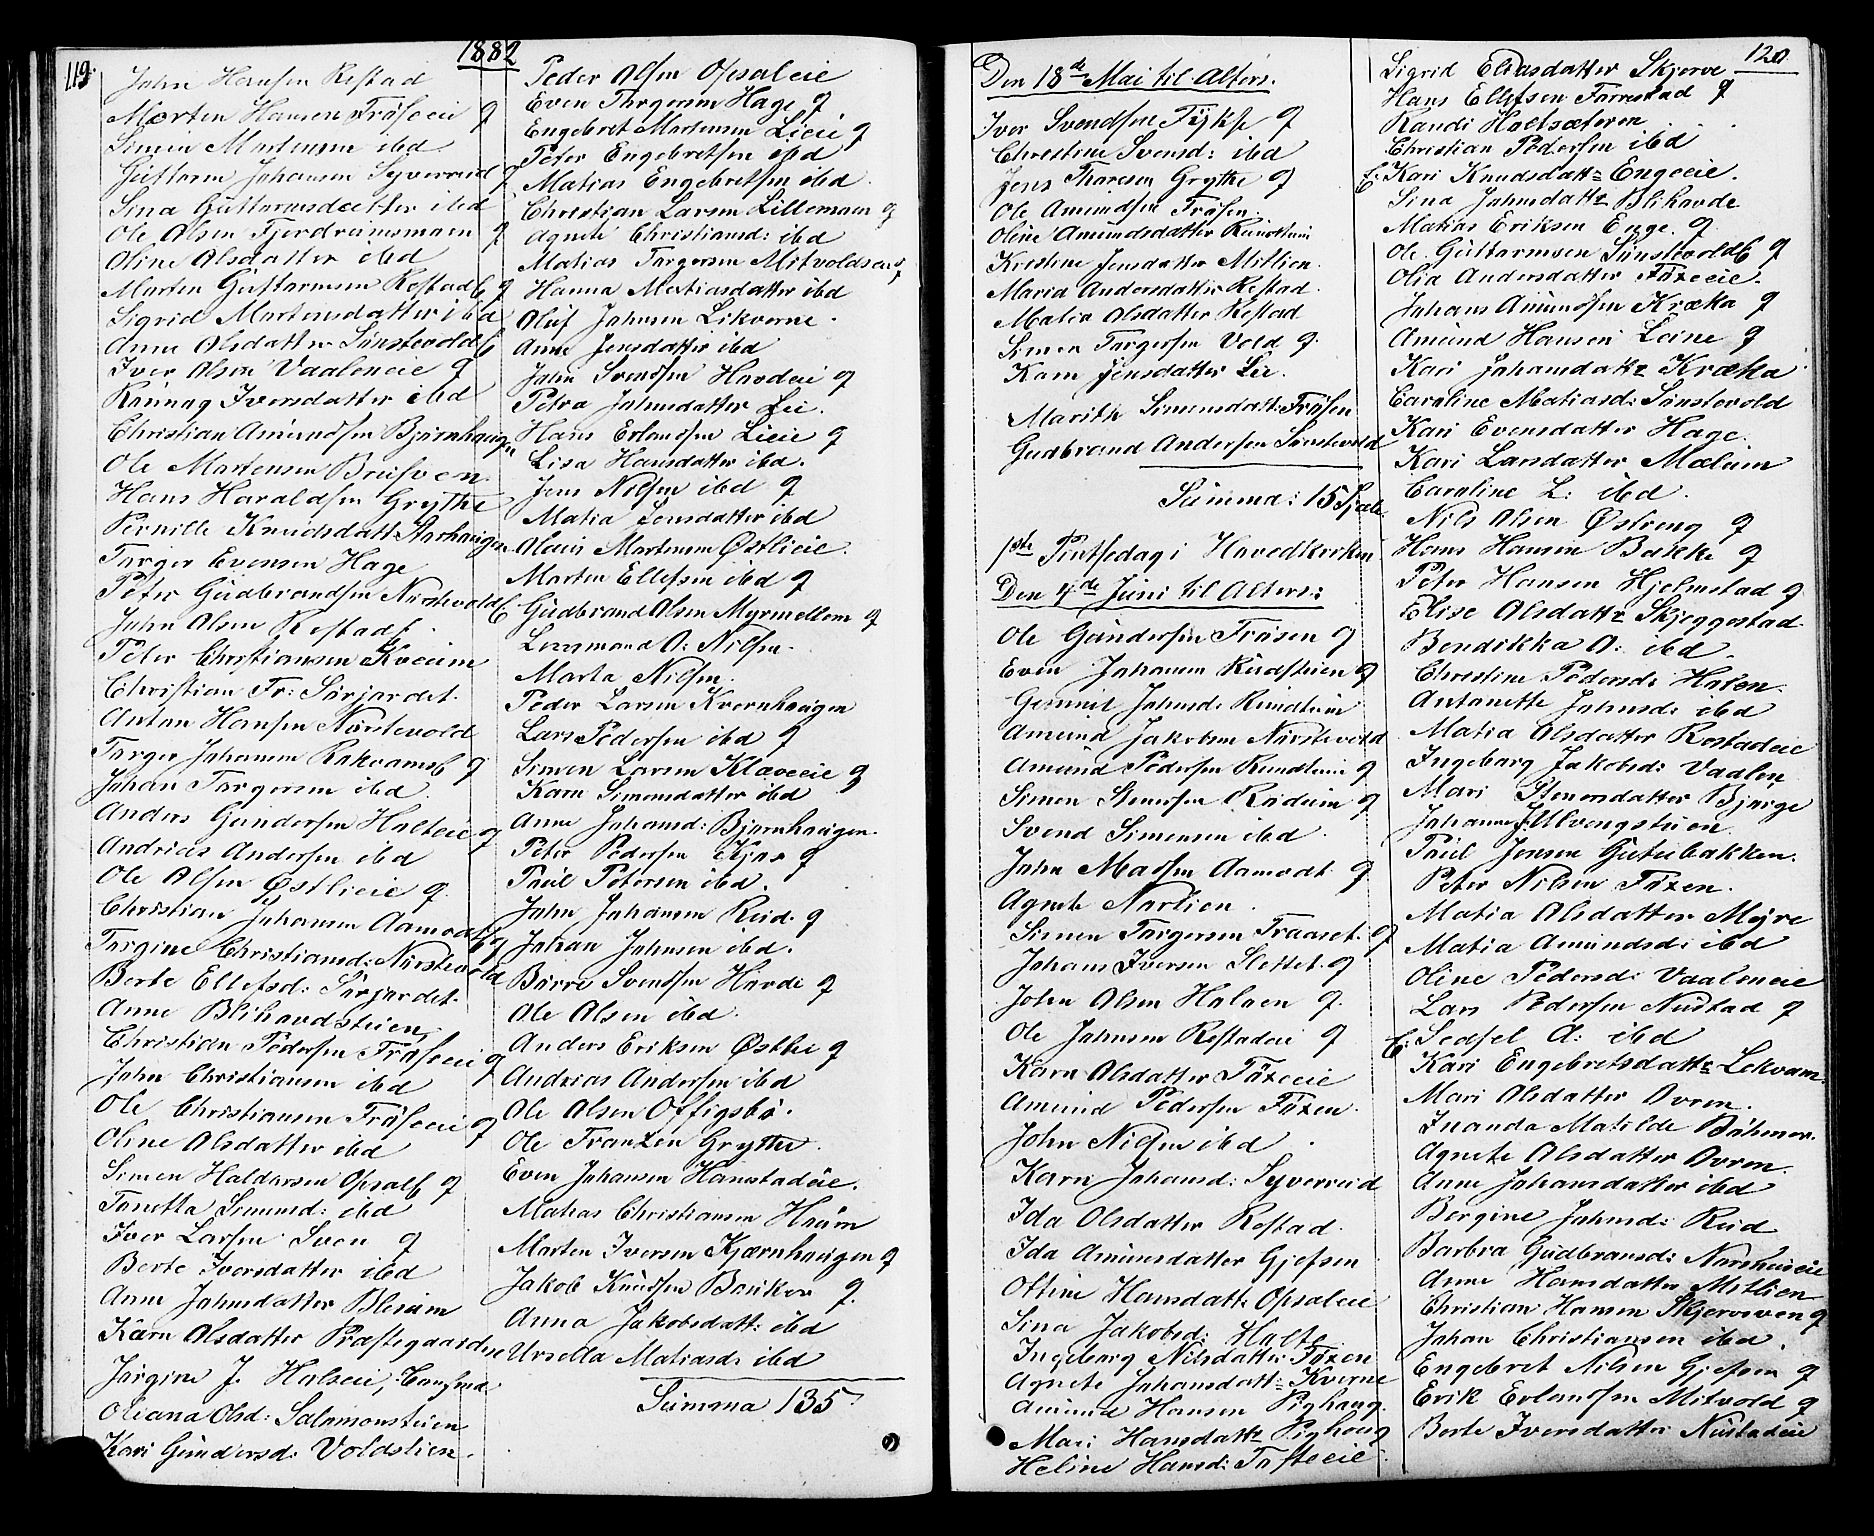 119.
1882
John Hansen Restad
Morten Hansen Fröseeie g
Simen Mortensen ibd
Guttorm Johansen Syverrud g
Sina Guttormsdatter ibd
Ole Olsen Fjerdrumsmoen g
Oline Olsdatter ibd
Morten Guttormsen Restad g
Sigrid Mortensdatter ibd
Anne Olsdatter Sönstevold
Iver Olsen Vaaleneie g
Rönnog Iversdatter ibd
Christian Amundsen Björnhaugen
Ole Mortensen Brusven
Hans Haraldsen Grytte
Pernille Knudsdatt. Aarhaugen
Torger Evensen Hage
Peter Gudbrandsen Nörstevold
John Olsen Restad
Peter Christiansen Kveum
Christian Fr: Sörjordet.
Anton Hansen Nörstevold
Torger Johansen Rakvam g
Johan Torgersen ibd
Anders Gundersen Holteie g
Andreas Andersen ibd
Ole Olsen Østlieie g
Christian Johansen Aamodt g
Torgine Christiansd: Nörstevold
Berte Ellefsd: Sörjordet.
Anne Blihovdstuen
Christian Pedersen Fröseeie g
John Christiansen ibd
Ole Christiansen Fröseeie g
Oline Olsdatter ibd
Simen Haldorsen Opsal g
Tonetta Simensd: ibd
Iver Larsen Sven g
Berte Iversdatter ibd
Anne Johnsdatter Blesum
Karn Olsdatter Præstegaarden
Jörgine J. Halseie,
Oliana Olsd: Salomonstuen
Kari Gundersd: Voldstien.
Peder Olsen Opsaleie
Even Torgersen Hage g
Engebret Mortensen Lieeie g
Peter Engebretsen ibd
Matias Engebretsen ibd
Christian Larsen Lillemoen g
Agnete Christiansd: ibd
Matias Torgersen Mitvoldseng g
Hanna Matiasdatter ibd
Oluf Johnsen Likverne.
Anne Jensdatter ibd
John Svendsen Hovdeie g
Petra Johnsdatter Lie.
Hans Erlandsen Lieie g
Lisa Hansdatter ibd.
Jens Nilsen ibd g
Matia Jensdatter ibd
Olaus Mortensen Østlieie.
Morten Ellefsen ibd g
Gudbrand Olsen Myrmellem g
O: Nilsen.
Marta Nilsen.
Peder Larsen Kvernhaugen
Lars Pedersen ibd g
Simen Larsen Klæveeie g
Karn Simensdatter ibd
Anne Johansd: Bjørnhaugen.
Peter Pedersen Kjos g
Paul Petersen ibd.
John Johansen Rud. g
Johan Johnsen ibd.
Börre Svendsen Hovde g
Ole Olsen ibd.
Anders Eriksen Østlie g
Andreas Andersen ibd
Ole Olsen Offigsbö.
Ole Franzen Grytte.
Even Johansen Hanstadeie.
Matias Christiansen Haúm
Morten Iversen Kjærnhaugen g
Jakob Knudsen Bakken g.
Anna Jakobsdatt: ibd
Ursella Matiasd: ibd
Summa 135
120
Den 18de Mai til Alters.
Iver Svendsen Fykse g
Christine Svensd: ibd
Jens Thoresen Grytte g
Ole Amundsen Frösen
Oline Amundsdatter Rundtuin
Kirstine Jensdatter Mitlien
Maria Andersdatter Restad.
Matea Olsdatter Restad
Simen Torgersen Vold g.
Karn Jensdatter Lie.
Marith Simensdatt: Frösen
Gudbrand Andersen Sönstevold
Summa: 15 Sjæle.
1ste Pintsedag i Hovedkirken
Den 4de Juni til Alters:
Ole Gundersen Frösen g
Even Johansen Rudstuen g
Johnsd: Rundtuin
Amund Jakobsen Nörstevold
Amund Pedersen Rundtuin g
Simen Stenersen Rudein g
Svend Simensen ibd
John Madsen Aamodt g
Agnete Norlien.
Simen Torgersen Fraaset. g
Johans Iversen Slettet. g
John Olsen Halaen g.
Ole Johnsen Restadeie g
Karn Olsdatter Foxeeie
Amund Pedersen Foxen.
John Nilsen ibd.
Karn Johansd: Syverrud
Ida Olsdatter Restad.
Ida Amundsdatter Gjefsen
Ottine Hansdatt. Opsaleie
Sina Jakobsd: Holte
Ingeborg Nilsdatter: Foxen
Agnete Johansdatt: Kverne
Amund Hansen Pighaug.
Mari Hansdatt Pighaug
Heline Hansd: Tofteeie
Sigrid Eliasdatter Skjerve
Hans Ellefsen Forrestad g
Randi Holtsæteren
Christian Pedersen ibd
Kari Knudsdatt: Engeeie.
Sina Johnsdatt: Blihovde
Matias Eriksen Enge. g
Ole Guttormsen Sönstevold g
Olia Andersdatter Foxeeie.
Johans Amundsen Kræka g
Amund Hansen Leine g
Kari Johansdatt: Kræka
Caroline Matiasd: Sönstevold
Kari Evensdatter Hage.
Kari Larsdatter Mælum
Caroline L: ibd.
Nils Olsen Østreng g
Hans Hansen Bakke g
Peter Hansen Hjelmstad g
Elise Olsdatt: Skjeggestad
Bendikka O: ibd
Christine Pedersd: Holen
Antonette Johnsd: ibd
Matia Olsdatter Restadeie
Ingeborg Jakobsd: Vaalen
Mari Stenersdatter Bjørge
Johanne J. Ulvengstuen
Paul Jensen Gutubakken.
Peter Nilsen Foxen.
Matia Olsdatter Myre
Matia Amundsd: ibd
Oline Pedersd: Vaaleneie
Lars Pedersen Nustad g
Sedsel A: ibd
Kari Engebretsdatt: Lekvam.
Mari Olsdatter Ovren.
Inanda Matilde Böhmer.
Agnete Olsdatter Ovren.
Anne Johansdatter ibd
Bergine Johnsd: Rud
Barbra Gudbransd: Norshuseie
Anne Hansdatter Mitlien
Christian Hansen Skjervsven g
Johan Christiansen ibd.
Engebret Nilsen Gjefsen g
Erik Erlandsen Mitvold g
Berte Iversdatter Nustadeie